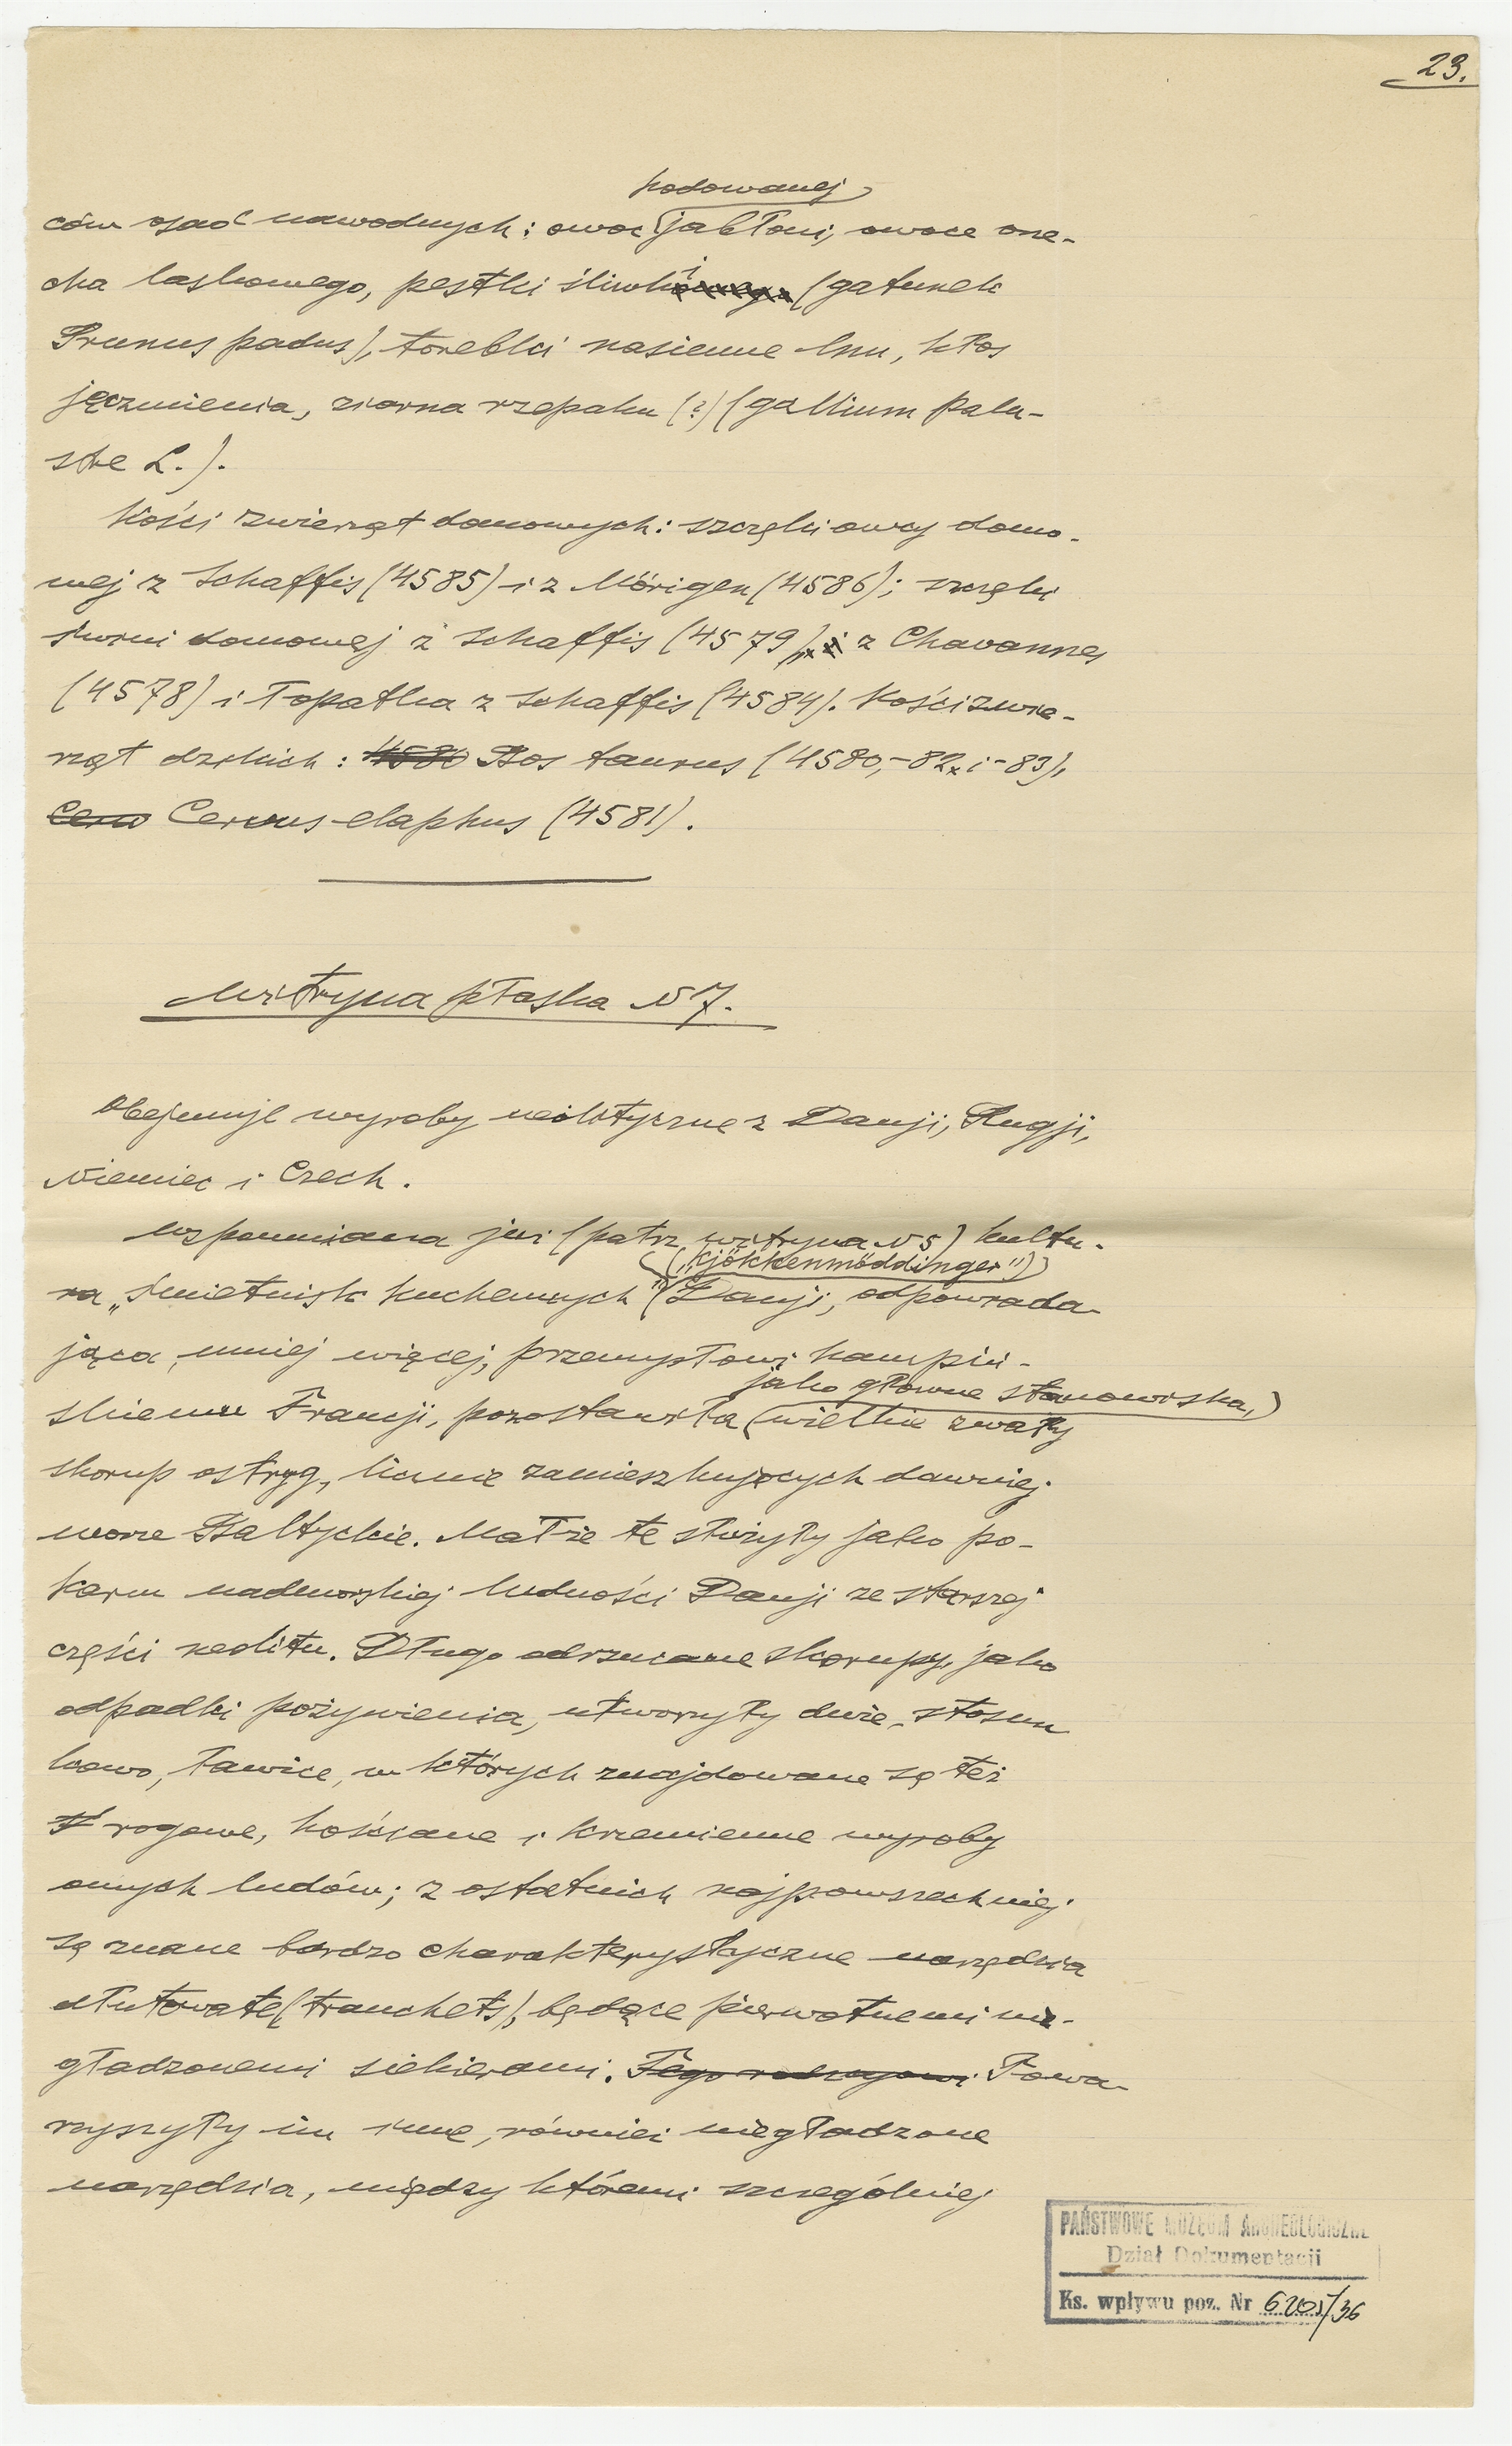 23.
hodowanej
ców osad nawodnych: owoc jabłoni, owoce orze-
cha laskowego, pestki śliwki (gatunek
Prunus padus), torebki nasienne lnu, kłos
jęczmienia, ziarna rzepaku (?) (gallium palu-
stre L.).
Kości zwierząt domowych: szczęki owcy domo-
wej z Schaffis (4585) i z Mörigen (4586); szczęki
świni domowej z Schaffis (4579) z Chavannes
(4578) i łopatka z Schaffis (4584). Kości zwie-
rząt dzikich: 4580 Bos taurus (4580, -82 i -83),
Cerw Cervus elaphus (4581).
Witryna płaska N 7.
Obejmuje wyroby neolityczne z Danji, Rugji,
Niemiec i Czech.
Wspomniana już (patrz witryna N 5) kultu-
("kjökkenmöddinger")
ra „śmietnisk kuchennych" Danji, odpowiada-
jąca, mniej więcej, przemysłowi kampiń-
jako główne stanowiska,
skiemu Francji, pozostawiła wielkie zwały
skorup ostryg, licznie zamieszkujących dawniej
morze Bałtyckie. Małże te służyły jako po-
karm nadmorskiej ludności Danji ze starszej
części neolitu. Długo odrzucane skorupy, jako
odpadki pożywienia, utworzyły duże, stosun
kowo, ławice, w których znajdowane są też
rogowe, kościane i krzemienne wyroby
onych ludów; z ostatnich najpowszechniej
są znane bardzo charakterystyczne narzędzia
dłutowate (tranchets), będące pierwotnemi nie-
gładzonemi siekierami. Tego rodzajowi Towa-
rzyszyły im inne, również niegładzone
narzędzia, między któremi szczególniej
PAŃSTWOWE MUZEUM ARCHEOLOGICZNE
Dział Dokumentacji
Ks. wpływu poz. Nr 6201/36